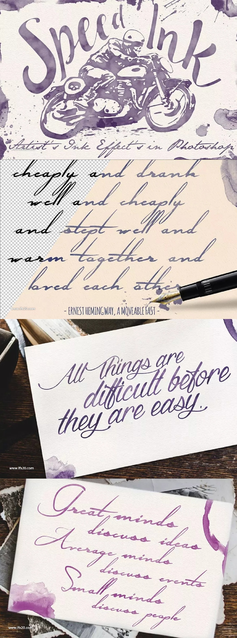 Speed Ink
Artist's Ink Effect's in Photoshop
cheaply and drank
well and cheaply
and slept well and
warm together and
loved each other
- ERNEST HEMINGWAY, A MOVEABLE FEAST -
All Things are
difficult before
they are easy.
www.ffx20.com
Great minds
discuss ideas
Average minds
discuss events
Small minds
discuss people